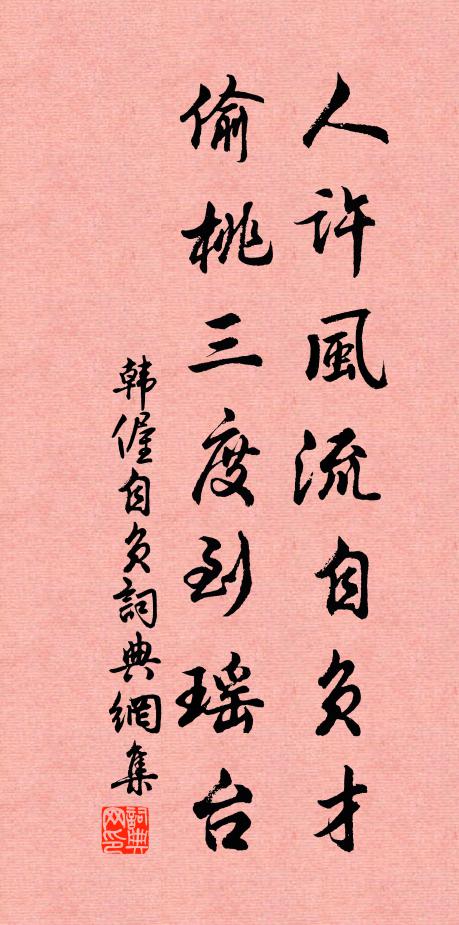 人许風流自负才
偷桃三度到瑶台
韩偓自负詞典網集
詞典网印